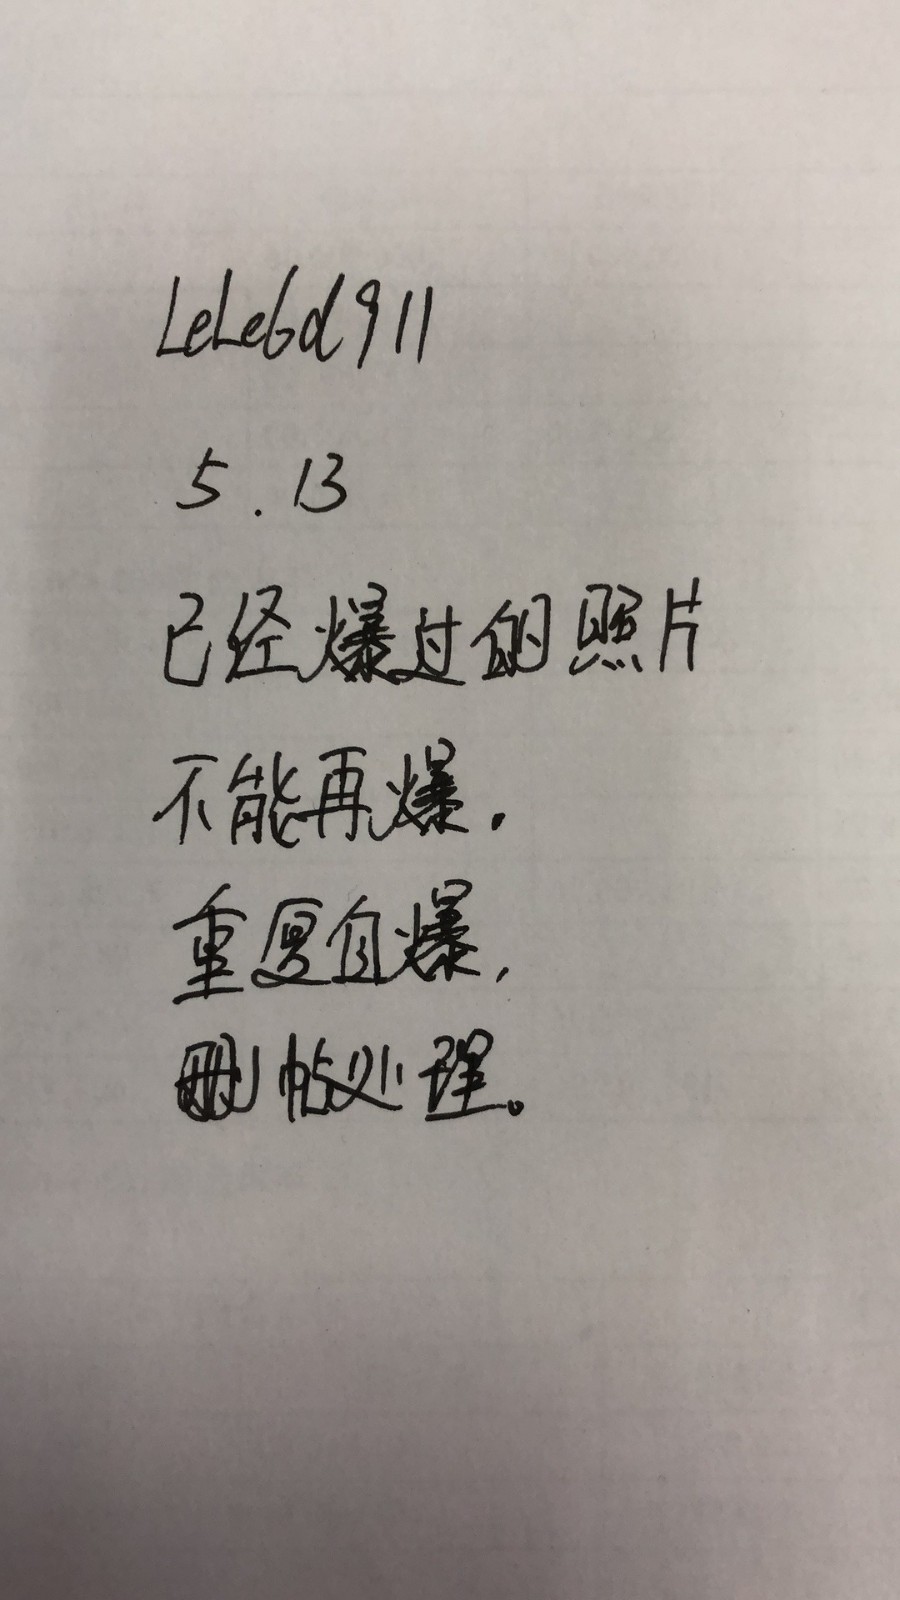 LeLeGd911
5.13
已经爆过的照片
不能再爆.
重复自爆,
删帖处理。